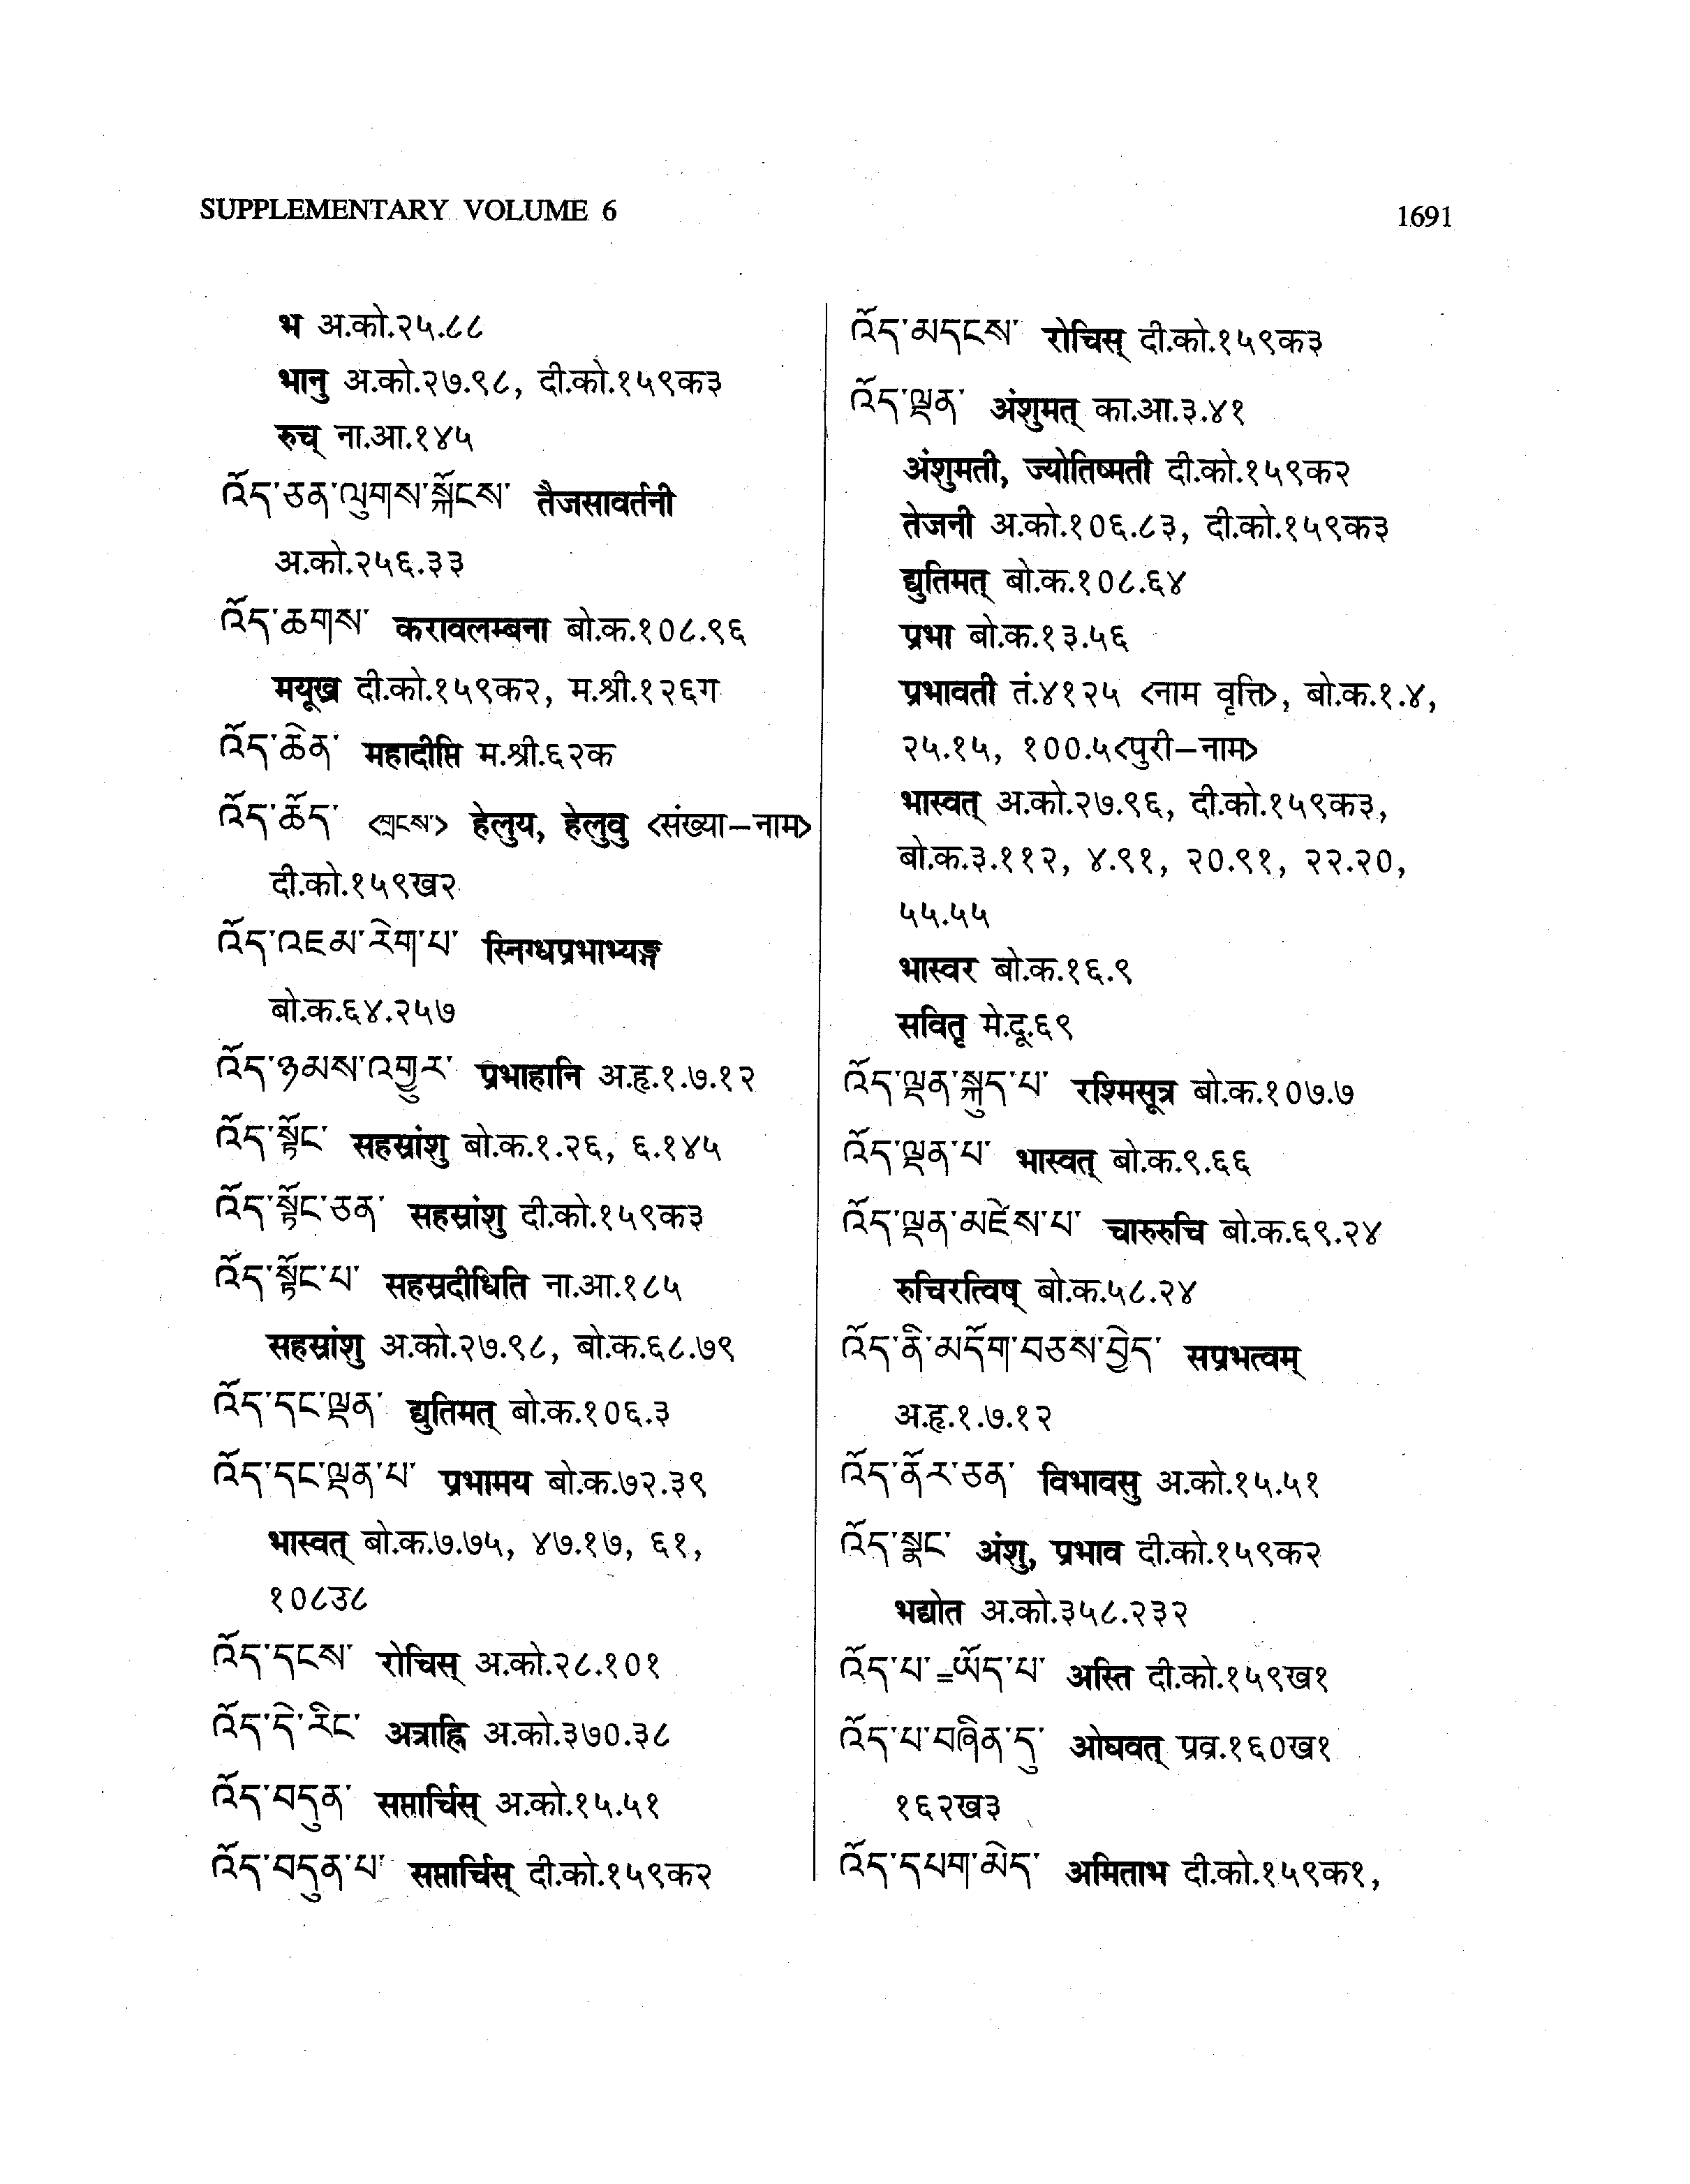 SUPPLEMENTARY VOLUME 6
1691
भ अ.को.२५.८८
भानु अ.को.२७.९८, दी.को.१५९क३
रुच् ना.आ.१४५
འོད་ཅན་ལུགས་སྐོངས་ तैजसावर्तनी
अ.को.२५६.३३
འོད་ཆགས་ करावलम्बना बो.क.१०८.९६
मयूख दी.को.१५९क२, म.श्री.१२६ग
འོད་ཆེན་ महादीप्ति म.श्री.६२क
འོད་ཆོད་ <གྲངས་> हेलुय, हेलुवु <संख्या–नाम>
दी.को.१५९ख२
འོད་འཇམ་རེག་པ་ स्निग्धप्रभाभ्यङ्ग
बो.क.६४.२५७
འོད་ཉམས་འགྱུར་ प्रभाहानि अ.हृ.१.७.१२
འོད་སྟོང་ सहस्रांशु बो.क.१.२६, ६.१४५
འོད་སྟོང་ཅན་ सहस्रांशु दी.को.१५९क३
འོད་སྟོང་པ་ सहस्रदीधिति ना.आ.१८५
सहस्रांशु अ.को.२७.९८, बो.क.६८.७९
འོད་དང་ལྡན་ द्युतिमत् बो.क.१०६.३
འོད་དང་ལྡན་པ་ प्रभामय बो.क.७२.३९
भास्वत् बो.क.७.७५, ४७.१७, ६१,
འོད་དངས་ रोचिस् अ.को.२८.१०१
འོད་དེ་རིང་ अत्राह्नि अ.को.३७०.३८
འོད་བདུན་ सप्तार्चिस् अ.को.१५.५१
འོད་བདུན་པ་ सप्तार्चिस् दी.को.१५९क२
འོད་མདངས་ रोचिस् दी.को.१५९क३
འོད་ལྡན་ अंशुमत् का.आ.३.४१
अंशुमती, ज्योतिष्मती दी.को.१५९क२
तेजनी अ.को.१०६.८३, दी.को.१५९क३
द्युतिमत् बो.क.१०८.६४
प्रभा बो.क.१३.५६
प्रभावती तं.४१२५ <नाम वृत्ति>, बो.क.१.४,
२५.१५, १००.५<पुरी–नाम>
भास्वत् अ.को.२७.९६, दी.को.१५९क३,
बो.क.३.११२, ४.९१, २०.९१, २२.२०,
५५.५५
भास्वर बो.क.१६.९
सवितृ मे.दू.६९
འོད་ལྡན་སྐུད་པ་ रश्मिसूत्र बो.क.१०७.७
འོད་ལྡན་པ་ भास्वत् बो.क.९.६६
འོད་ལྡན་མཛེས་པ་ चारुरुचि बो.क.६९.२४
रुचिरत्विष् बो.क.५८.२४
འོད་ནི་མདོག་བཅས་བྱེད་ सप्रभत्वम्
अ.हृ.१.७.१२
འོད་ནོར་ཅན་ विभावसु अ.को.१५.५१
འོད་སྣང་ अंशु, प्रभाव दी.को.१५९क२
भद्योत अ.को.३५८.२३२
འོད་པ་=ཡོད་པ་ अस्ति दी.को.१५९ख१
འོད་པ་བཞིན་དུ་ ओघवत् प्रव्र.१६०ख१
१६२ख३
འོད་དཔག་མེད་ अमिताभ दी.को.१५९क१,